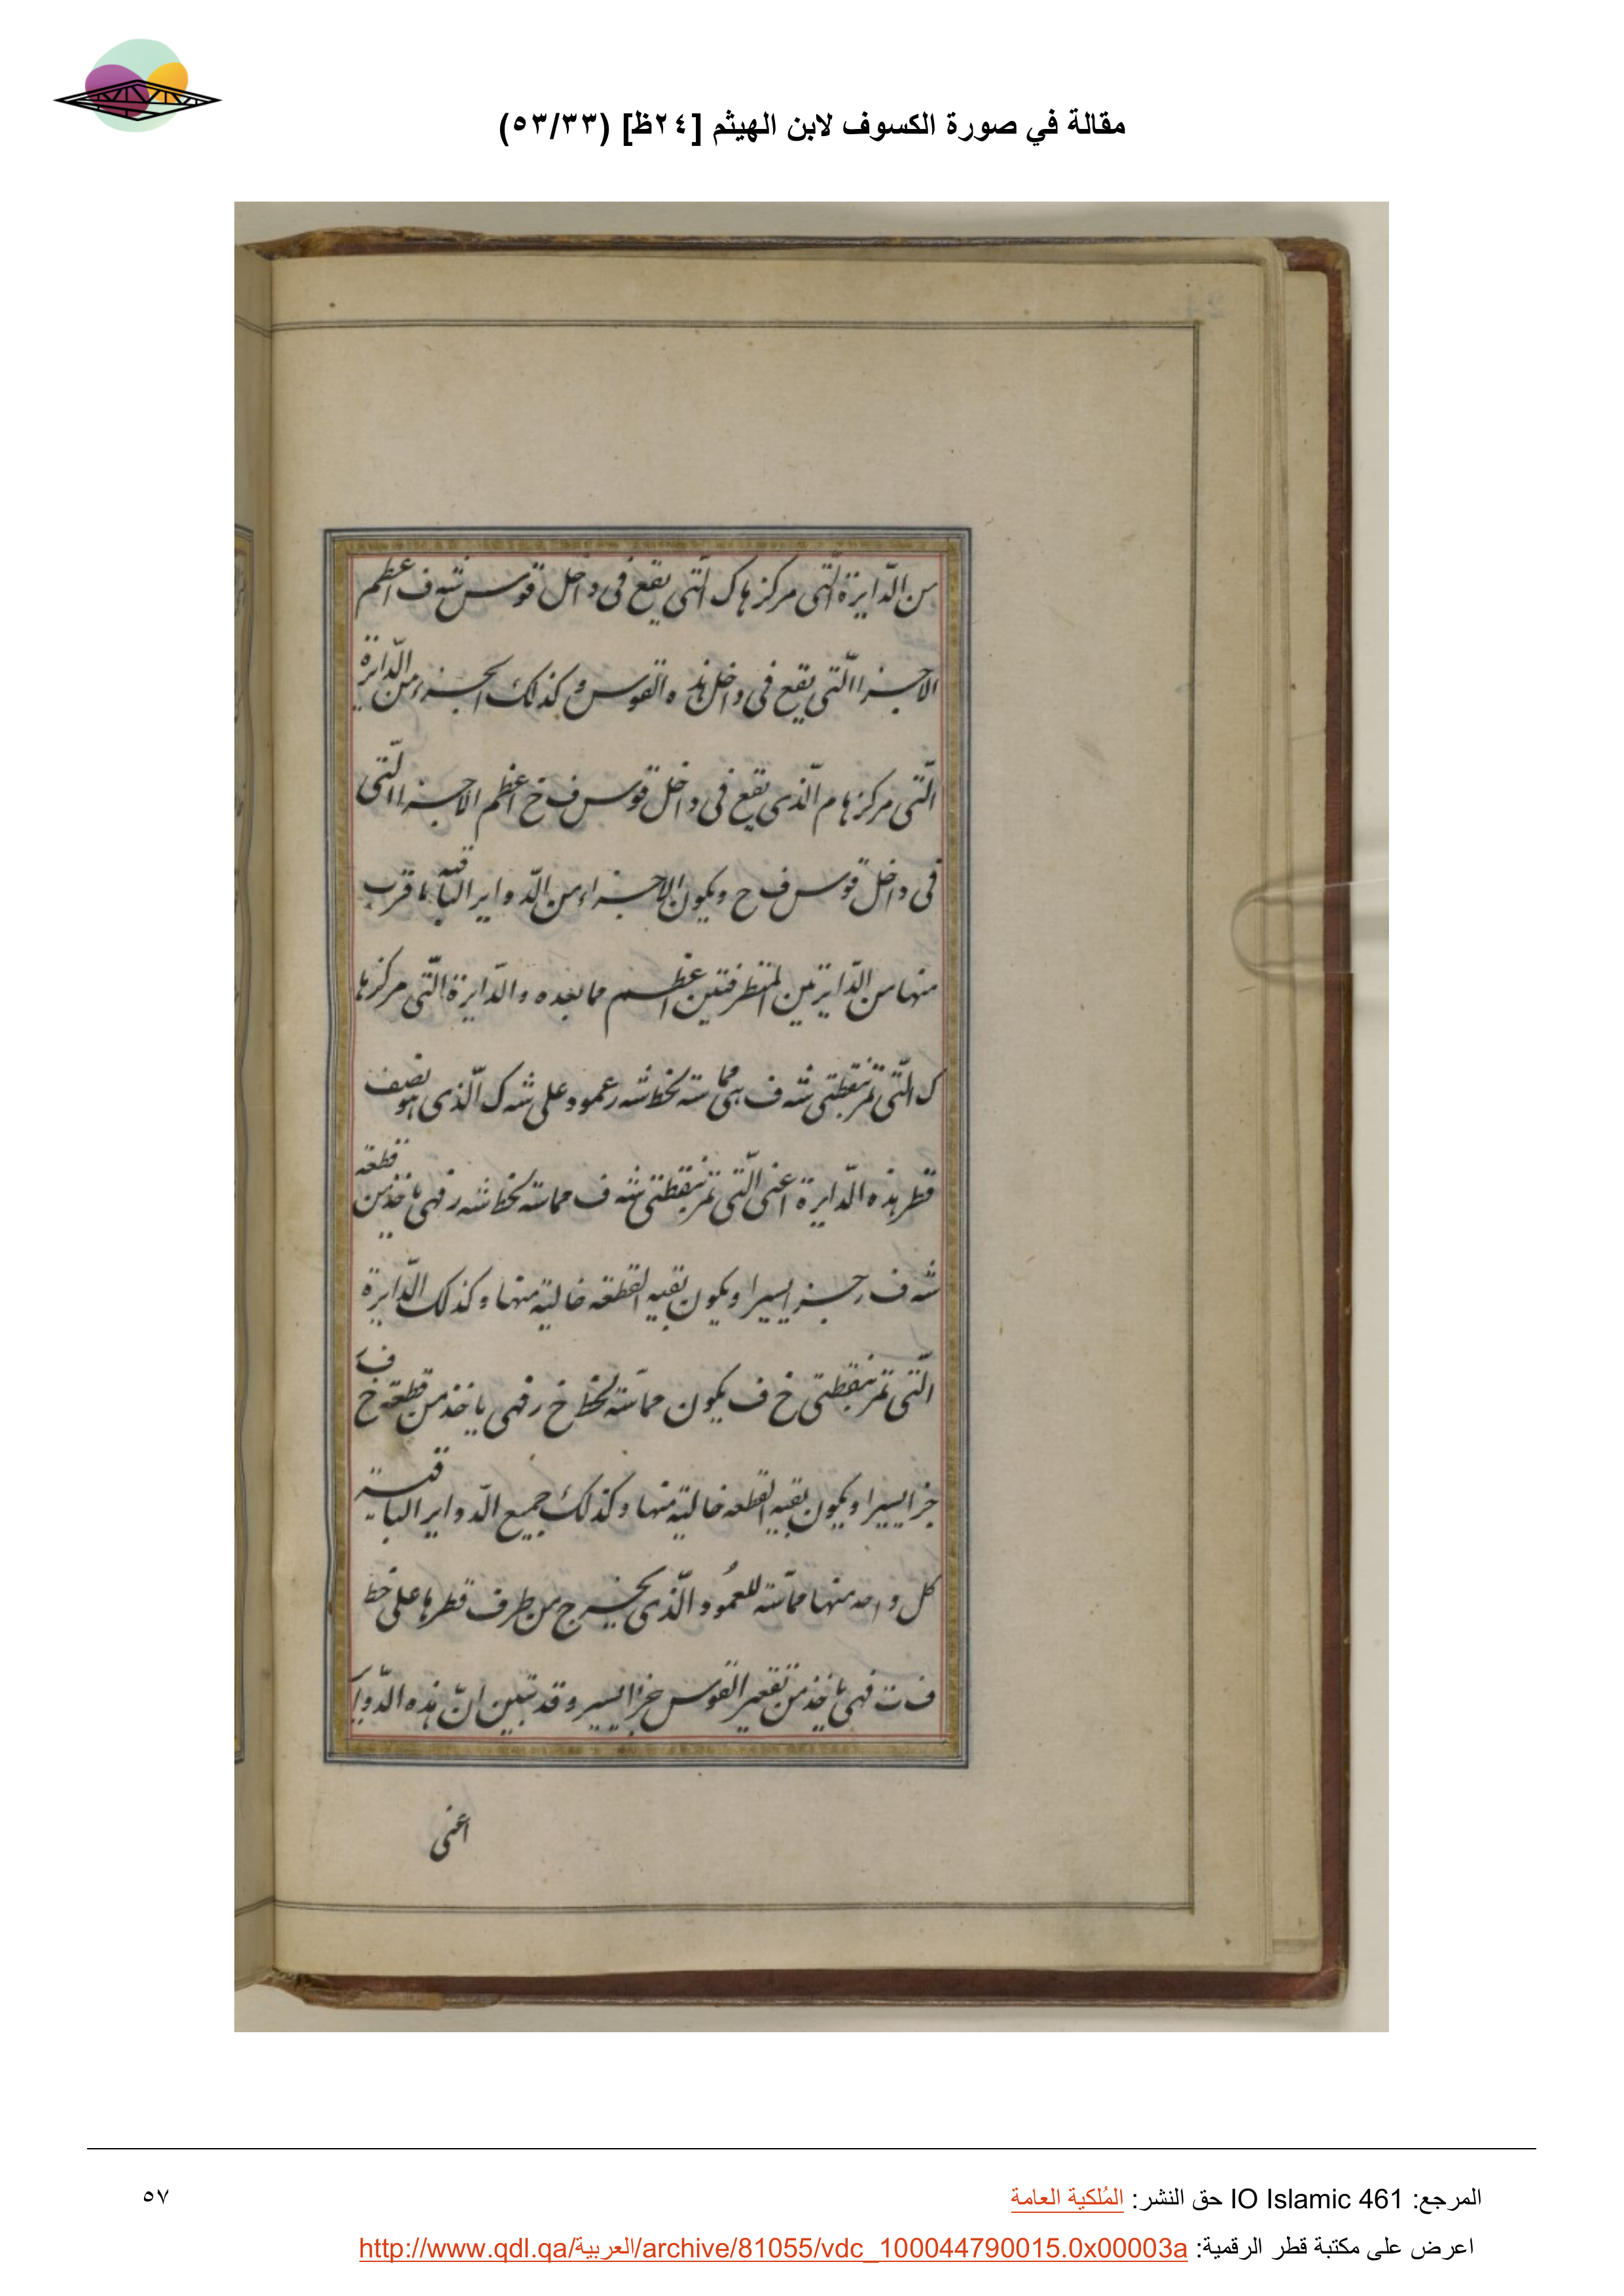 مقالة في صورة الكسوف لابن الهيثم [٢٤ظ] (٥٣/٣٣)
من الدّايرة الّتى مركزها ك الّتى يقع فى داخل قوس شه ف اعظم
الاجزا الّتى يقع فى داخل هذه القوس وكذلك الجزء من الدّايرة
الّتى مركزها م الّذى يقع فى داخل قوس ف خ اعظم الاجزا الّتى
فى داخل قوس ف خ ويكون الاجزاء من الدّواير الباقية ما قرب
منها من الدّايرتين المتطرفتين اعظم مما بعده والدّايرة الّتى مركزها
ك الّتى تمر بنقطتى شه ف هى مماسة لخط شه ر عمود على شه ك الّذى هو نصف
قطر هذه الدّايرة اعنى الّتى تمر بنقطتى شه ف مماسة لخط شه ر فهى ياخذ من قطعة
شه ف ر جزا يسيرا ويكون بقيه القطعه خالية منها وكذلك الدّايرة
الّتى تمر بنقطتى خ ف يكون مماسّة لخط خ ر فهى ياخذ من قطعة خ ف ر
جزا يسيرا ويكون بقيه القطعه خالية منها وكذلك جميع الدّواير الباقية
كل واحد منها مماسّة للعمود الّذى يخرج من طرف قطرها على خط
ف ت فهى ياخذ من تقعير القوس جزا يسير وقد تبين انّ هذه الدّواير
اعنى
المرجع: IO Islamic 461 حق النشر: المُلكية العامة
٥٧
اعرض على مكتبة قطر الرقمية: http://www.qdl.qa/العربية/archive/81055/vdc_100044790015.0x00003a